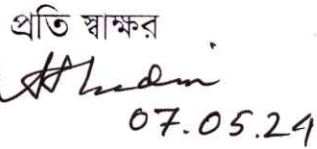 প্রতি স্বাক্ষর
07.05.24